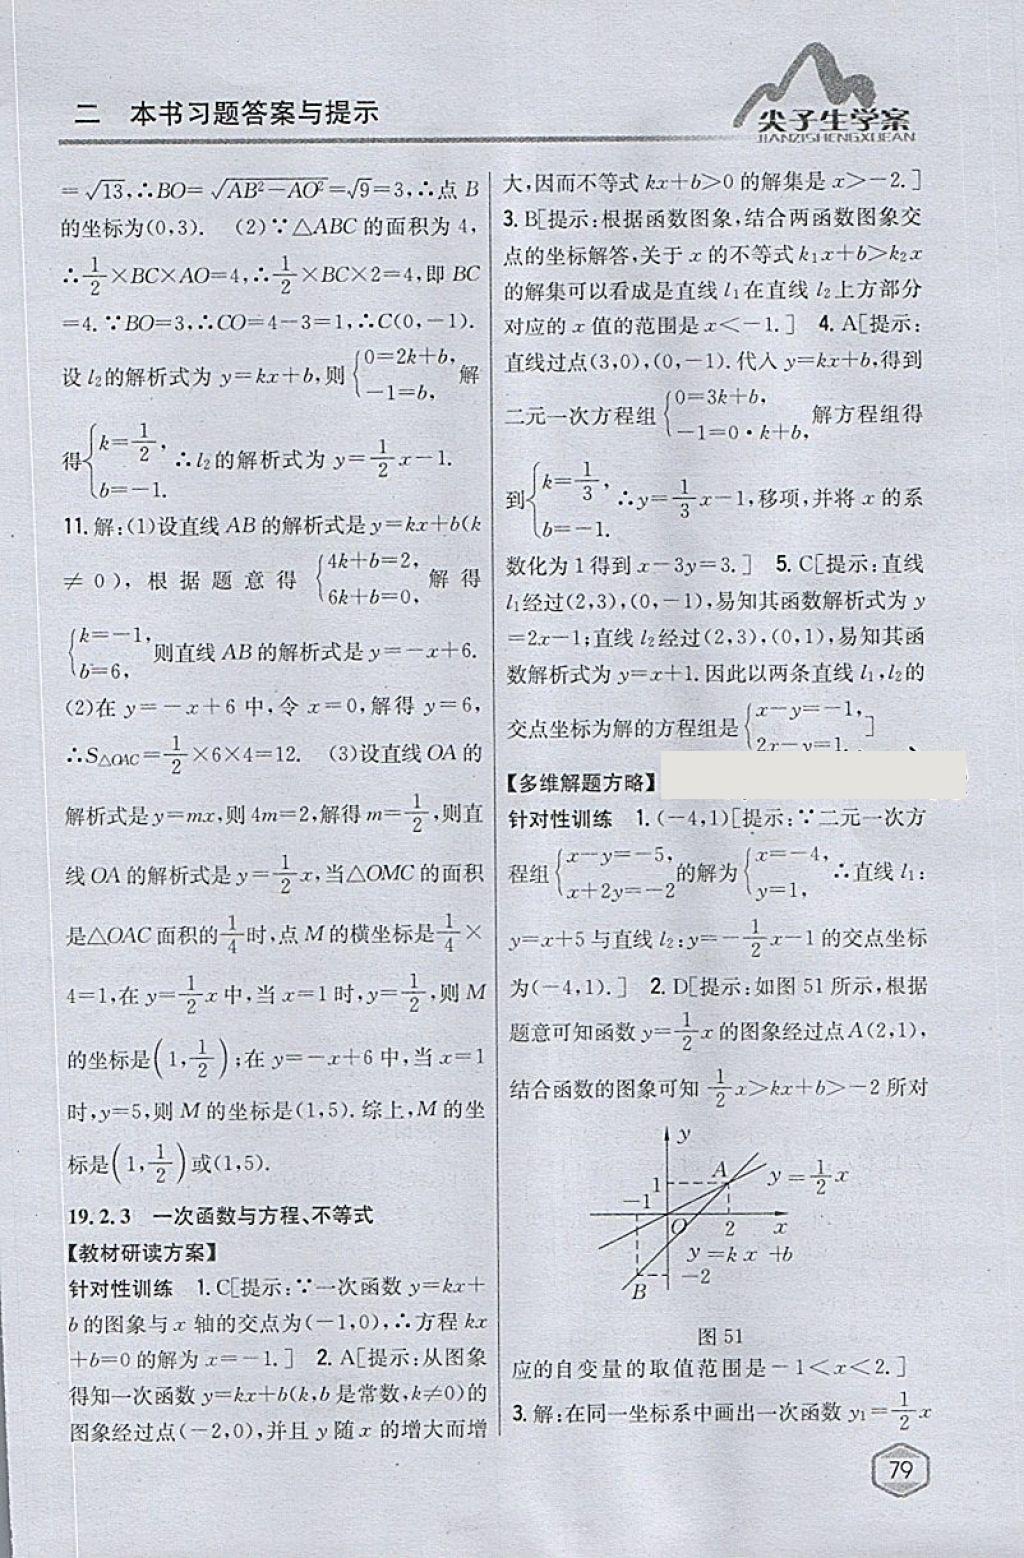 二 本书习题答案与提示
尖子生学案
JIANZISHENGXUEAN
=√13,∴BO=√(AB²-AO²)=√9=3,∴点 B
的坐标为(0,3). (2)∵△ABC 的面积为 4,
∴1/2×BC×AO=4,∴1/2×BC×2=4,即 BC
=4.∵BO=3,∴CO=4-3=1,∴C(0,-1).
设 l₂的解析式为 y=kx+b,则{0=2k+b, -1=b, 解
得{k=1/2, b=-1. ∴l₂的解析式为 y=1/2x-1.
11.解:(1)设直线 AB 的解析式是 y=kx+b(k
≠0),根据题意得{4k+b=2, 6k+b=0, 解得
{k=-1, b=6, 则直线 AB 的解析式是 y=-x+6.
(2)在 y=-x+6 中,令 x=0,解得 y=6,
∴S△OAC=1/2×6×4=12. (3)设直线 OA 的
解析式是 y=mx,则 4m=2,解得 m=1/2,则直
线 OA 的解析式是 y=1/2x,当△OMC 的面积
是△OAC 面积的1/4时,点 M 的横坐标是1/4×
4=1,在 y=1/2x 中,当 x=1 时,y=1/2,则 M
的坐标是(1,1/2);在 y=-x+6 中,当 x=1
时,y=5,则 M 的坐标是(1,5).综上,M 的坐
标是(1,1/2)或(1,5).
19.2.3 一次函数与方程、不等式
【教材研读方案】
针对性训练 1.C[提示:∵一次函数 y=kx+
b 的图象与 x 轴的交点为(-1,0),∴方程 kx
+b=0 的解为 x=-1.] 2.A[提示:从图象
得知一次函数 y=kx+b(k,b 是常数,k≠0)的
图象经过点(-2,0),并且 y 随 x 的增大而增
大,因而不等式 kx+b>0 的解集是 x>-2.]
3.B[提示:根据函数图象,结合两函数图象交
点的坐标解答,关于 x 的不等式 k₁x+b>k₂x
的解集可以看成是直线 l₁在直线 l₂上方部分
对应的 x 值的范围是 x<-1.] 4.A[提示:
直线过点(3,0),(0,-1).代入 y=kx+b,得到
二元一次方程组{0=3k+b, -1=0·k+b, 解方程组得
到{k=1/3, b=-1. ∴y=1/3x-1,移项,并将 x 的系
数化为 1 得到 x-3y=3.] 5.C[提示:直线
l₁经过(2,3),(0,-1),易知其函数解析式为 y
=2x-1;直线 l₂经过(2,3),(0,1),易知其函
数解析式为 y=x+1.因此以两条直线 l₁,l₂的
交点坐标为解的方程组是{x-y=-1, 2x-y=1. ]
【多维解题方略】
针对性训练 1.(-4,1)[提示:∵二元一次方
程组{x-y=-5, x+2y=-2 的解为{x=-4, y=1, ∴直线 l₁:
y=x+5 与直线 l₂:y=-1/2x-1 的交点坐标
为(-4,1).] 2.D[提示:如图 51 所示,根据
题意可知函数 y=1/2x 的图象经过点 A(2,1),
结合函数的图象可知 1/2x>kx+b>-2 所对
y
A
y=1/2x
1
-1
O 2 x
y=kx+b
-2
B
图 51
应的自变量的取值范围是-1<x<2.]
3.解:在同一坐标系中画出一次函数 y₁=1/2x
79